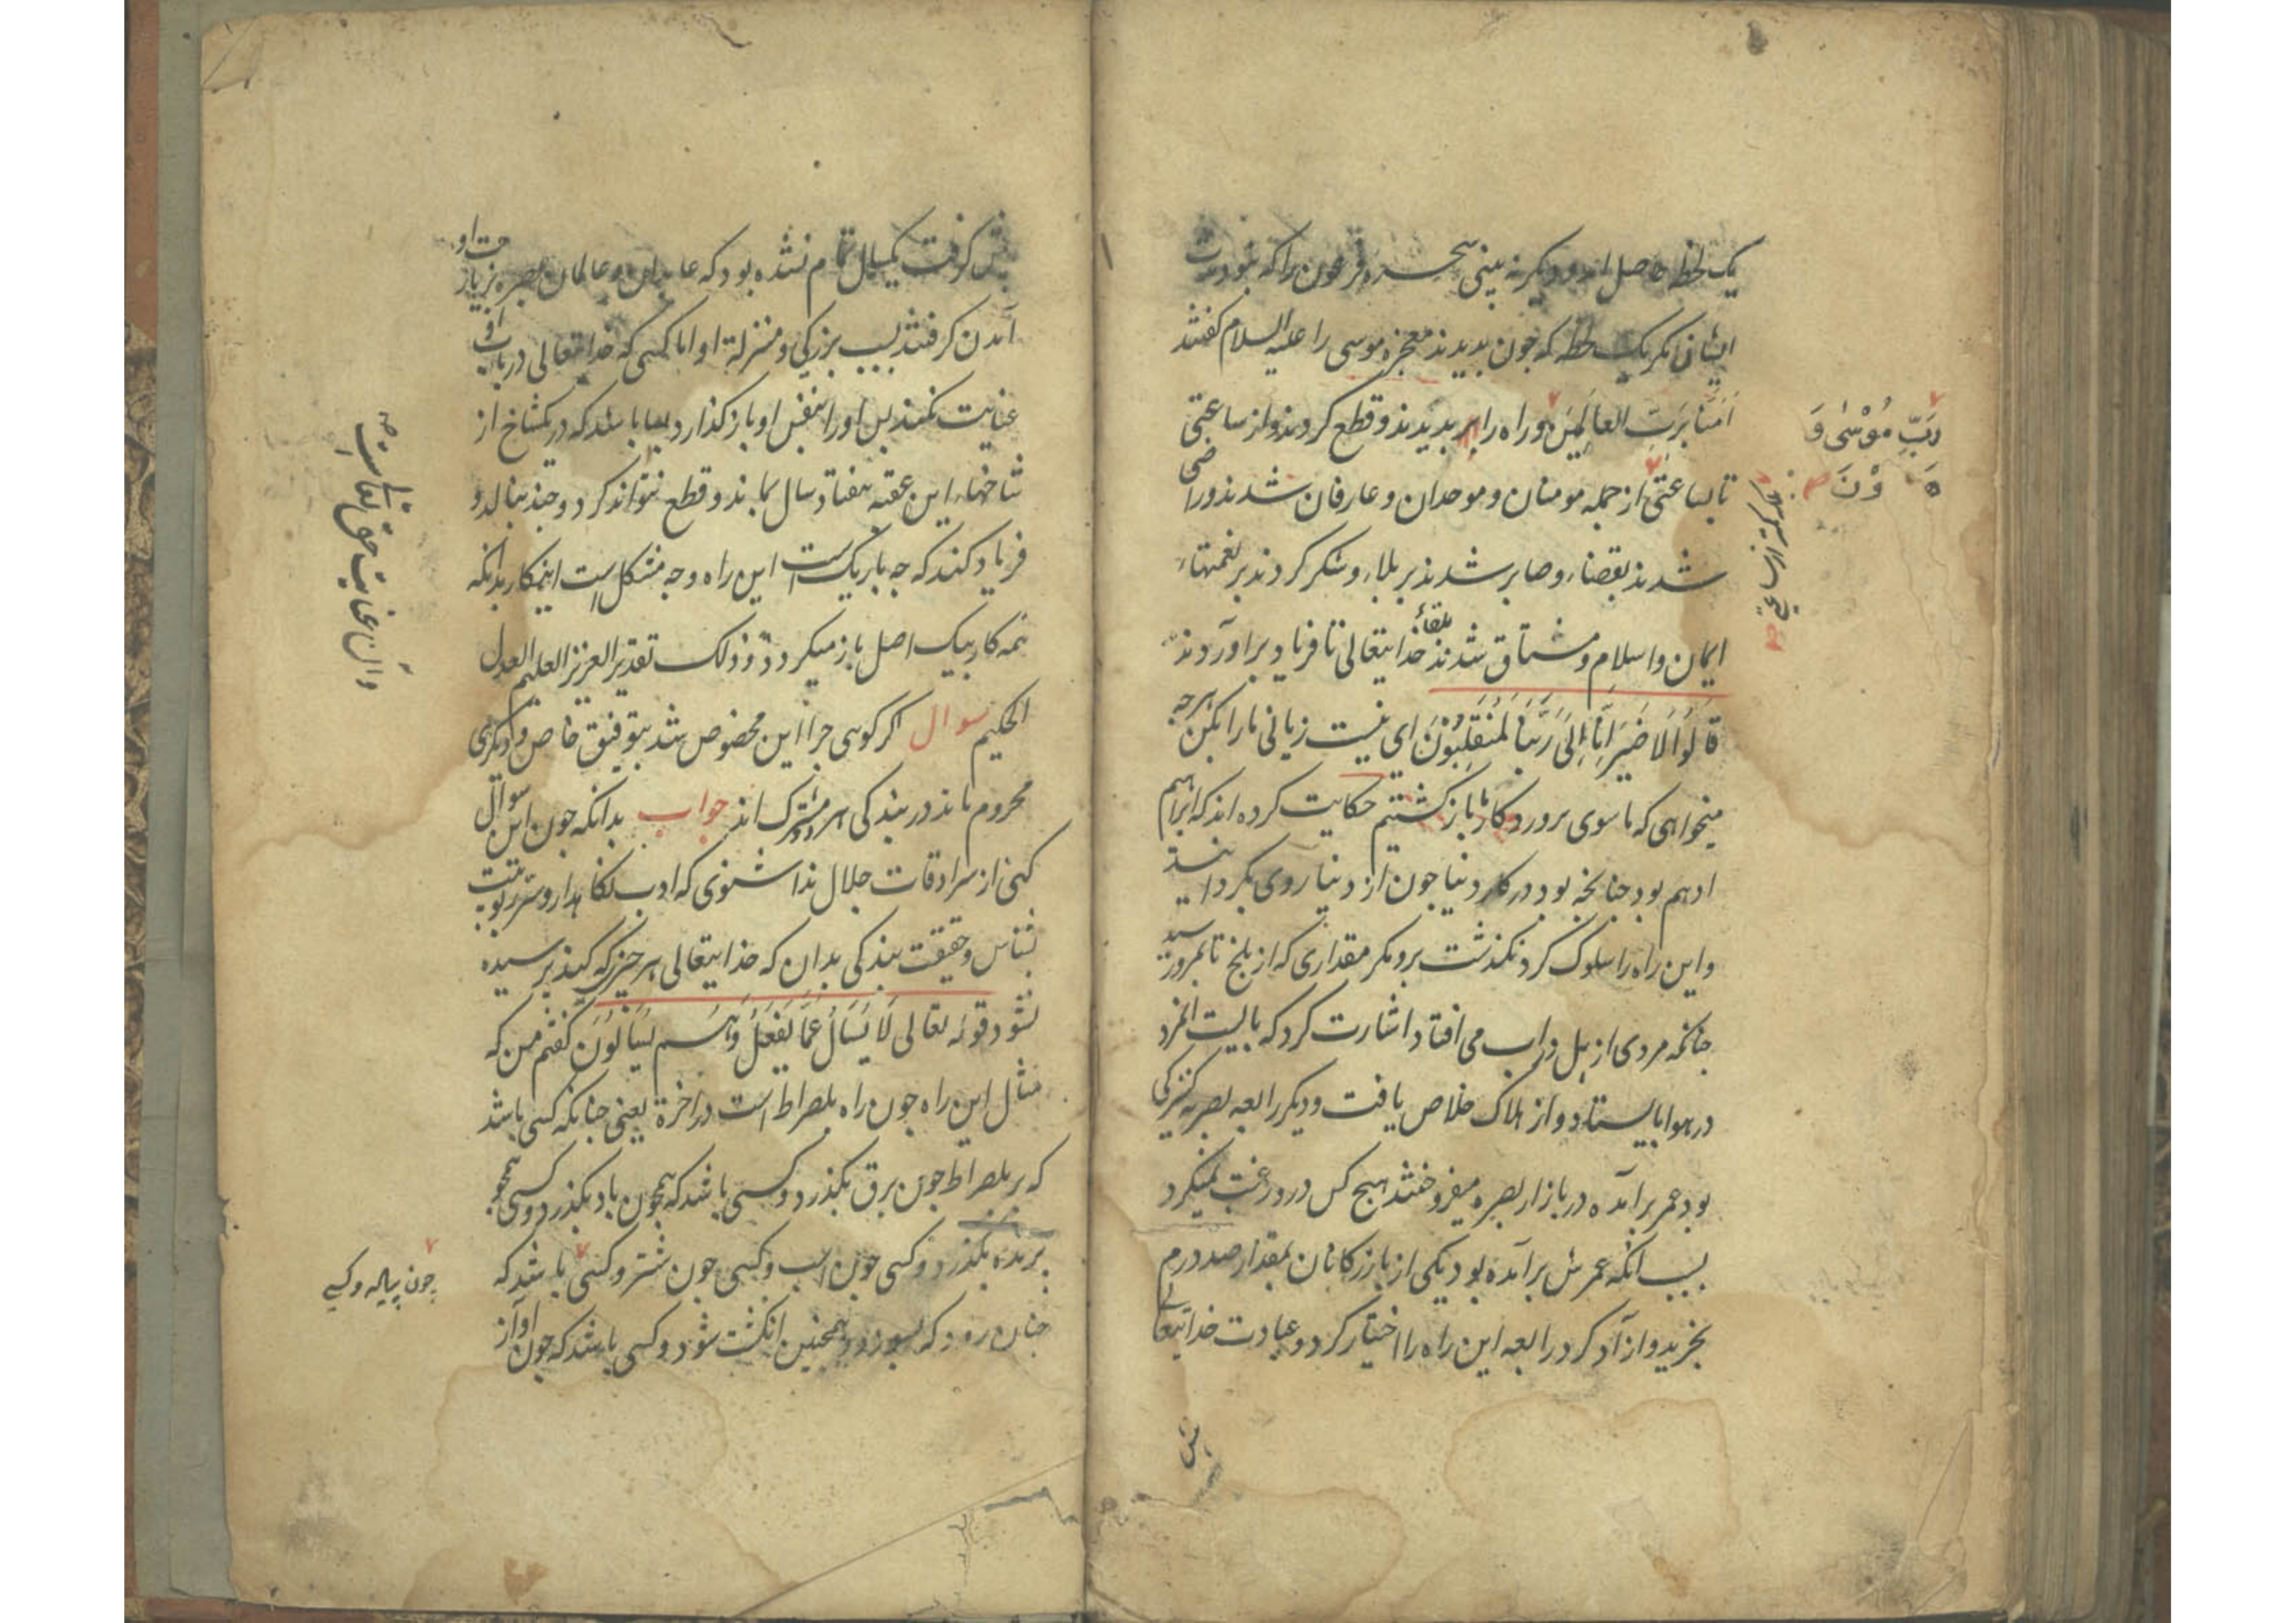 یک لحظه حاصل آمد و دیگر نه بینی سحره فرعون را که نبود مدت
ایشان مکر یک لحظه که جون بدیدند معجزه موسی را علیه السلام کفتند
اٰمَنَّا بِرَبِّ العالَمِینَ و راه را بدیدند و قطع کردند و از ساعتی
تا بساعتی از جمله مومنان و موحدان و عارفان شدند و راضی
شدند بقضاء و صابر شدند بر بلاء و شکر کردند بر نعمتهاء
ایمان و اسلام و مشتاق شدند بلقاء خدایتعالی تا فریاد براوردند
قَالُوْا لَا ضَیْرَ اِنَّا اِلیٰ رَبِّنَا لَمُنْقَلِبُوْنَ ای نیست زیانی مارا بکن هرجه
میخواهی که ما سوی پروردکار باز کشتیم حکایت کرده اند که ابراهیم
ادهم بود جنانجه بود در کار دنیا جون از دنیا روی بکردانید
و این راه را سلوک کرد نکذشت برو مکر مقداری که از بلخ تا بمرو رسید
جنانکه مردی از پل در آب می افتاد اشارت کرد که بایست المرد
در هوا بایستاد و از هلاک خلاص یافت و دیکر رابعه بصریه کنیزکی
بود عمر برآمده در بازار بصره میفروختند هیج کس درو رغبت نمیکرد
بسبب آنکه عمرش برآمده بود یکی از بازرکانان بمقدار صد درم
بخرید و آزاد کرد رابعه این راه را اختیار کرد و عبادت خدایتعالی
رَبِّ مُوْسٰی وَ
هَ وْنَ
بلکه از ساعتی
بیش کرفت یکسال تمام نشده بود که عابدان و عالمان بصره بزیارت او
آمدن کرفتند بسبب بزرکی و منزلة او اما کسی که خدایتعالی در باب او
عنایت نکند بس او را بنفس او باز کذارد بسا باشد که در یکشاخ از
شاخهاء این عقبه هفتاد سال بماند و قطع نتواند کرد و جند بنالد و
فریاد کند که جه باریک است این راه و جه مشکل است اینکار بدانکه
همه کار بیک اصل باز میکردد و ذلک تقدیر العزیز العلیم العدل
الحکیم سوال اکر کوئی جرا این مخصوص شد بتوفیق خاص و دیکری
محروم ماند در بندکی هر دو مشترک اند جواب بدانکه جون این سوال
کنی از سرادقات جلال ندا شنوی که ادب نکاهدار و سر ربوبیت
بشناس و حقیقت بندکی بدان که خدایتعالی هر جیزی که کند پرسیده
نشود قوله تعالی لَا یُسْاَلُ عَمَّا یَفْعَلُ وَهُمْ یُسْاَلُوْنَ کفتم من که
مثال این راه جون راه پلصراط است در آخرة یعنی جنانکه کسی باشد
که بر پلصراط جون برق بکذرد و کسی باشد که همجون باد بکذرد و کسی همجو
پرنده بکذرد و کسی جون اسب و کسی جون شتر و کسی باشد که
جنان رود که بسوزد و همجنین انکشت شود و کسی باشد که جون آواز
جون پیاده و کسی